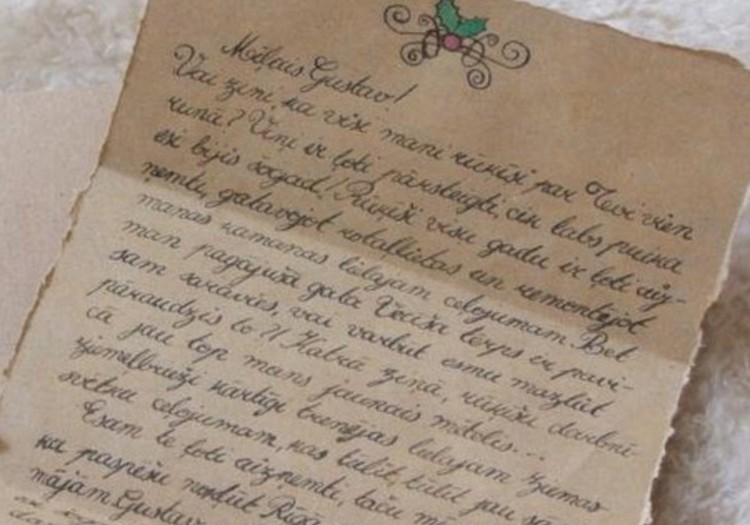 Mīļais Gustav!
Vai zini, ka visi mani rūķīši par Tevi vien
runā? Viņi ir ļoti pārsteigti, cik labs puika
esi bijis šogad! Rūķīši visu gadu ir ļoti aiz-
ņemti, gatavojot rotaļlietas un remontējot
manas kamanas lielajam ceļojumam. Bet
man pagājušā gada Veciša tērps ir pavi-
sam sarāvies, vai varbūt esmu mazliet
pāraudzis to?! Katrā ziņā, rūķīšu darbnī-
cā jau top mans jaunais mētelis...
Ziemeļbrieži kārtīgi trenējas lielajam Ziemas-
svētku ceļojumam, kas tūlīt, tūlīt jau
Esam te ļoti aizņemti, taču
ka paspēšu nokļūt Rīgā
mājām Gustav